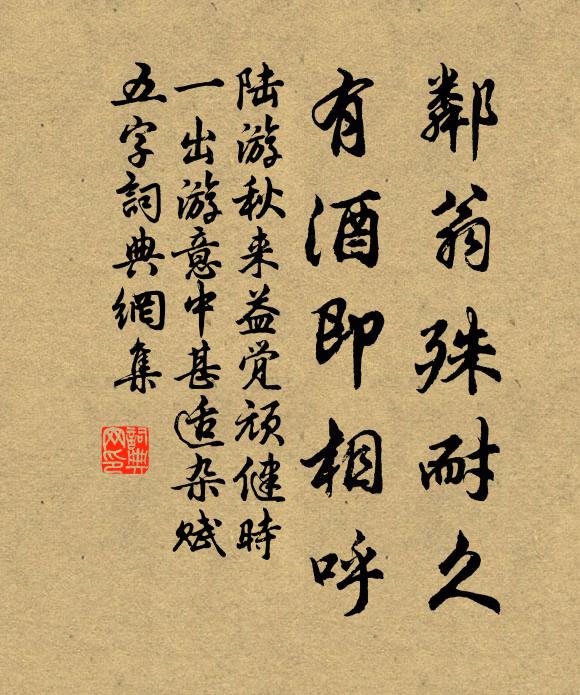 鄰翁殊耐久
有酒即相呼
陆游秋来益觉顽健时
一出游意中甚适杂赋
五字詞典網集
詞典
网印